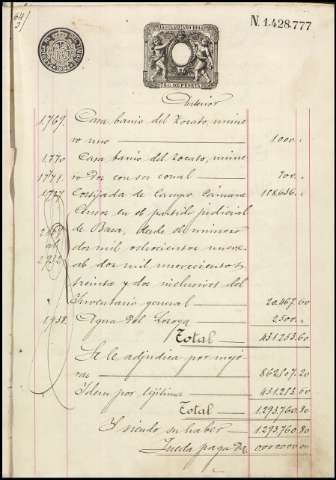 N. 1.428.777
Anterior
1.769. Casa barrio del Zocato, número uno 1000..
1.770 Casa barrio del Zocato, número
1771. Dos con su corral 700..
Cortijada de Campo Cámara
en el partido judicial
de Baza, desde el número
dos mil ochocientos nueve
al dos mil novecientos
treinta y dos inclusives del
Inventario general 20.467.60
1938. Agua del 2500..
Total 431.253.60
Se le adjudica por mejoras 862.507.20
Idem por legítima 431.253.60
Total 1.293.760.80
Y siendo su haber 1.293.760.80
Queda pagada 000000000